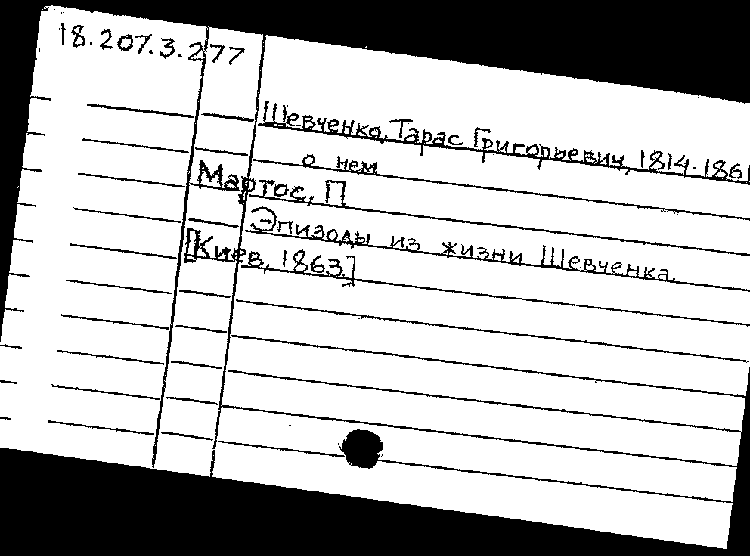 18.207.3.277
Шевченко, Тарас Григорьевич, 1814-1861
о нем
Мартос, П
Эпизоды из жизни Шевченка.
[Киев, 1863.]